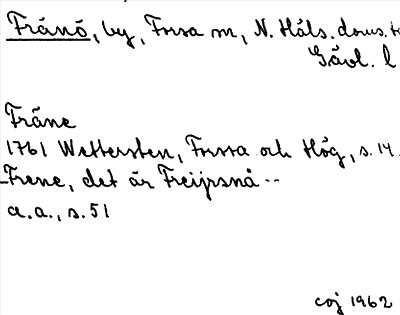 Frånö, by, Forsa sn, N. Häls. doms.
Gävl. l
Fråne
1761 Wettersten, Forssa och Hög, s. 14.
Frene, det är Freijrsnå --
a.a., s. 51
coj 1962